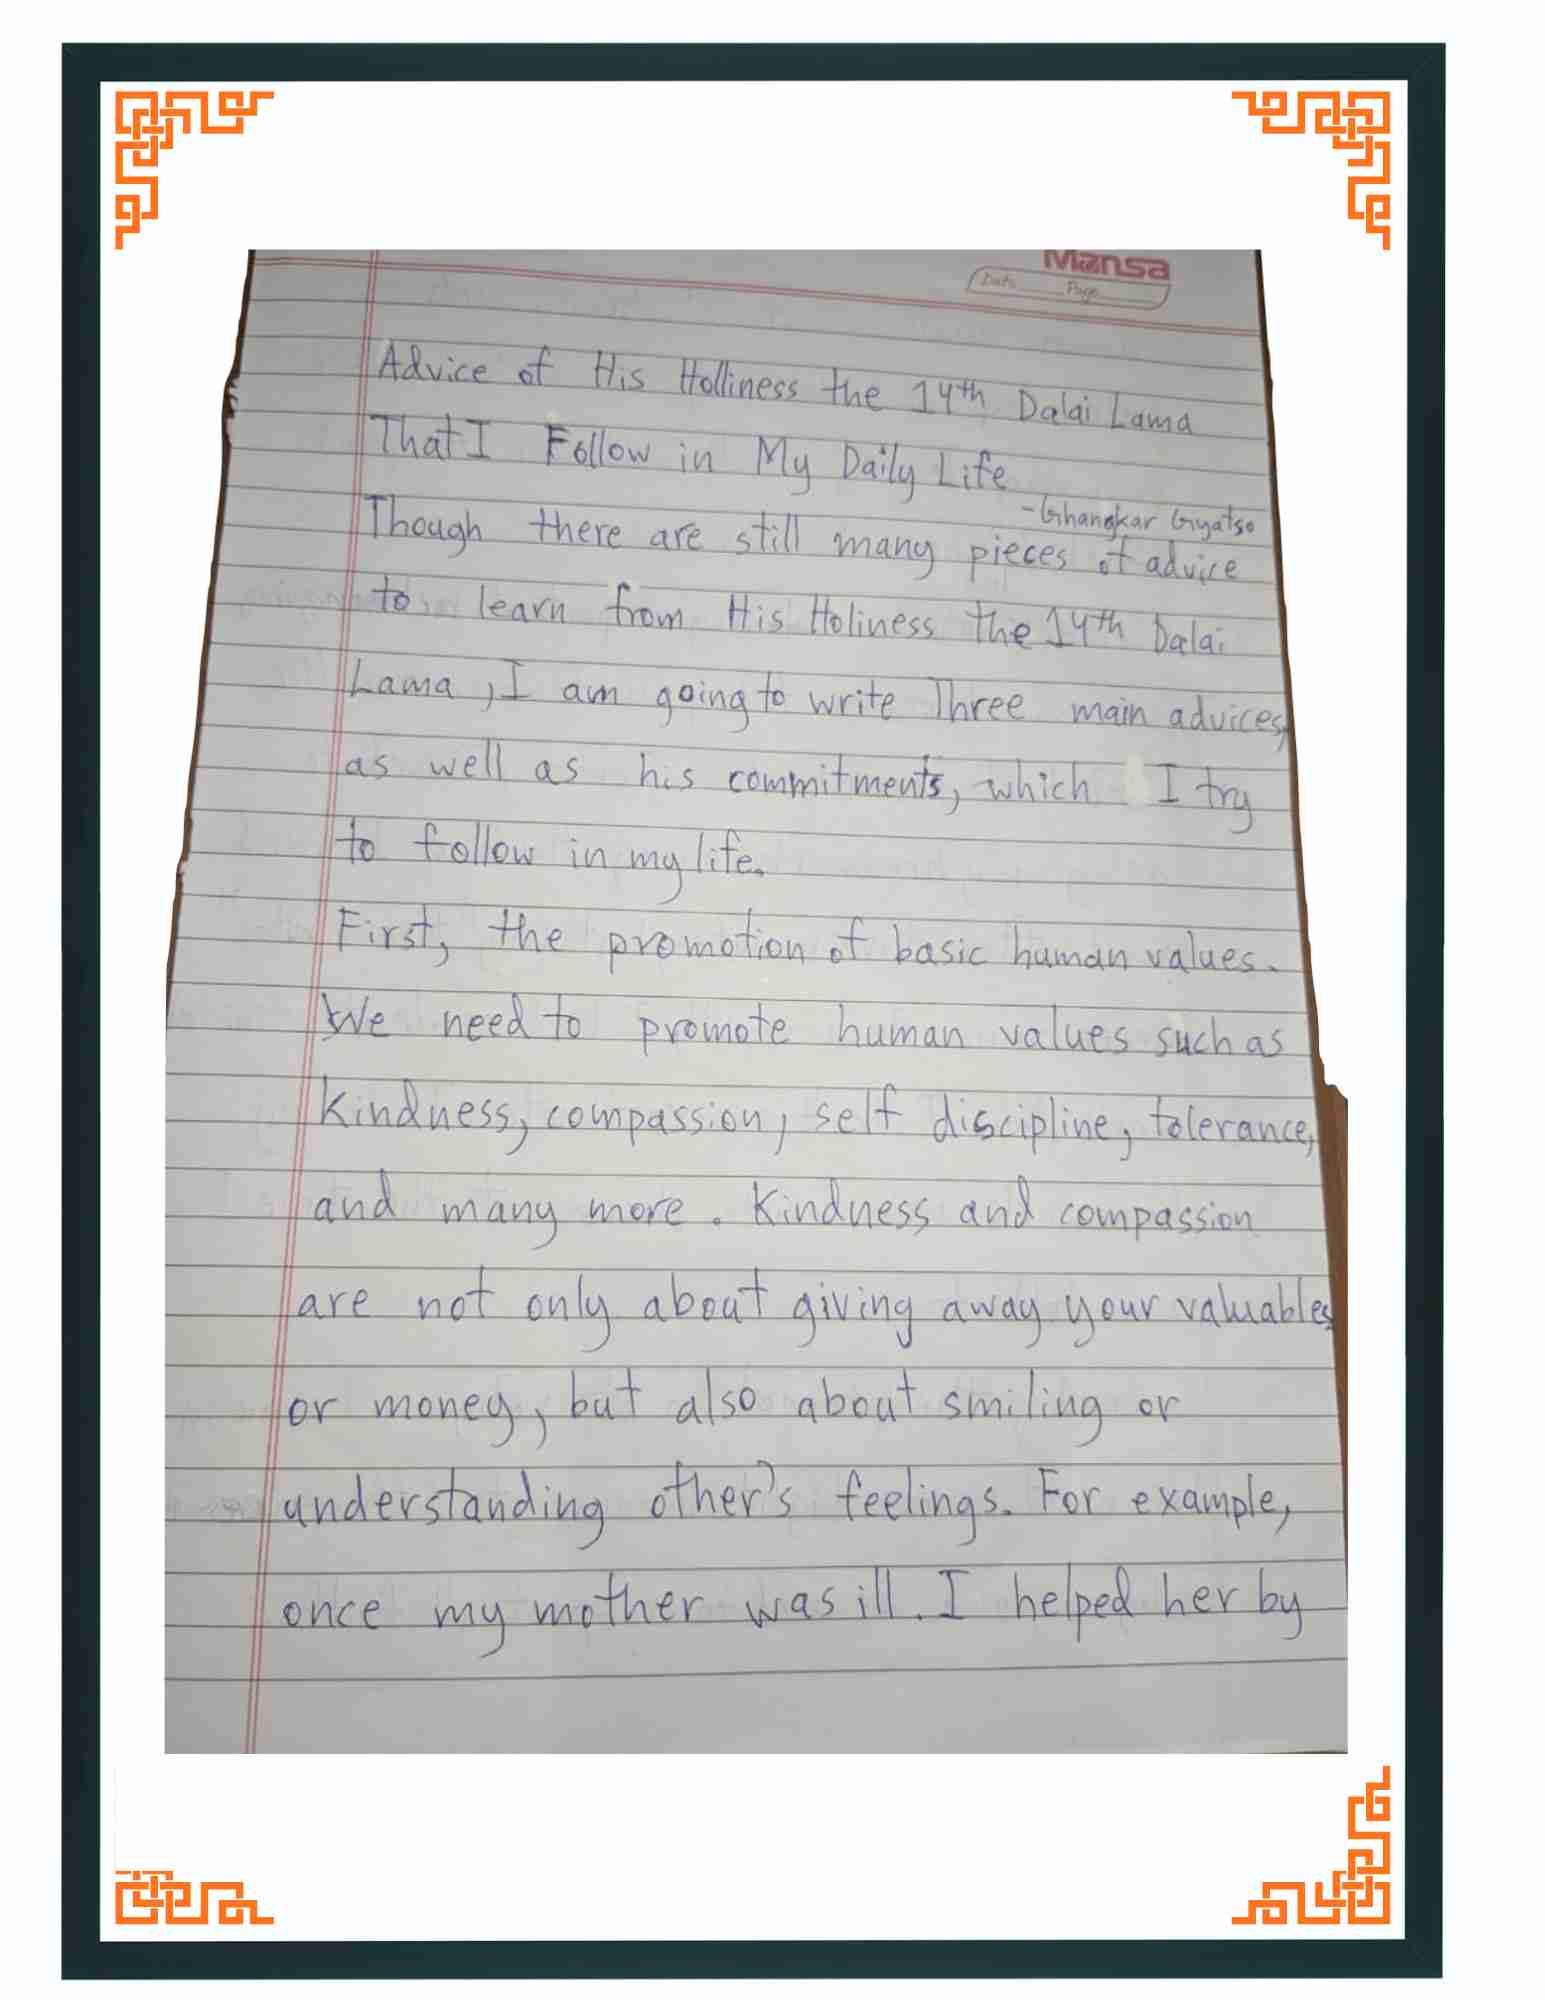 Mansa
Date Page
Advice of His Holliness the 14th Dalai Lama
That I Follow in My Daily Life
-Ghangkar Gyatso
Though there are still many pieces of advice
to learn from His Holiness the 14th Dalai
Lama, I am going to write Three main advices,
as well as his commitments, which I try
to follow in my life.
First, the promotion of basic human values.
We need to promote human values such as
Kindness, compassion, self discipline, tolerance,
and many more. Kindness and compassion
are not only about giving away your valuables
or money, but also about smiling or
understanding other's feelings. For example,
once my mother was ill. I helped her by